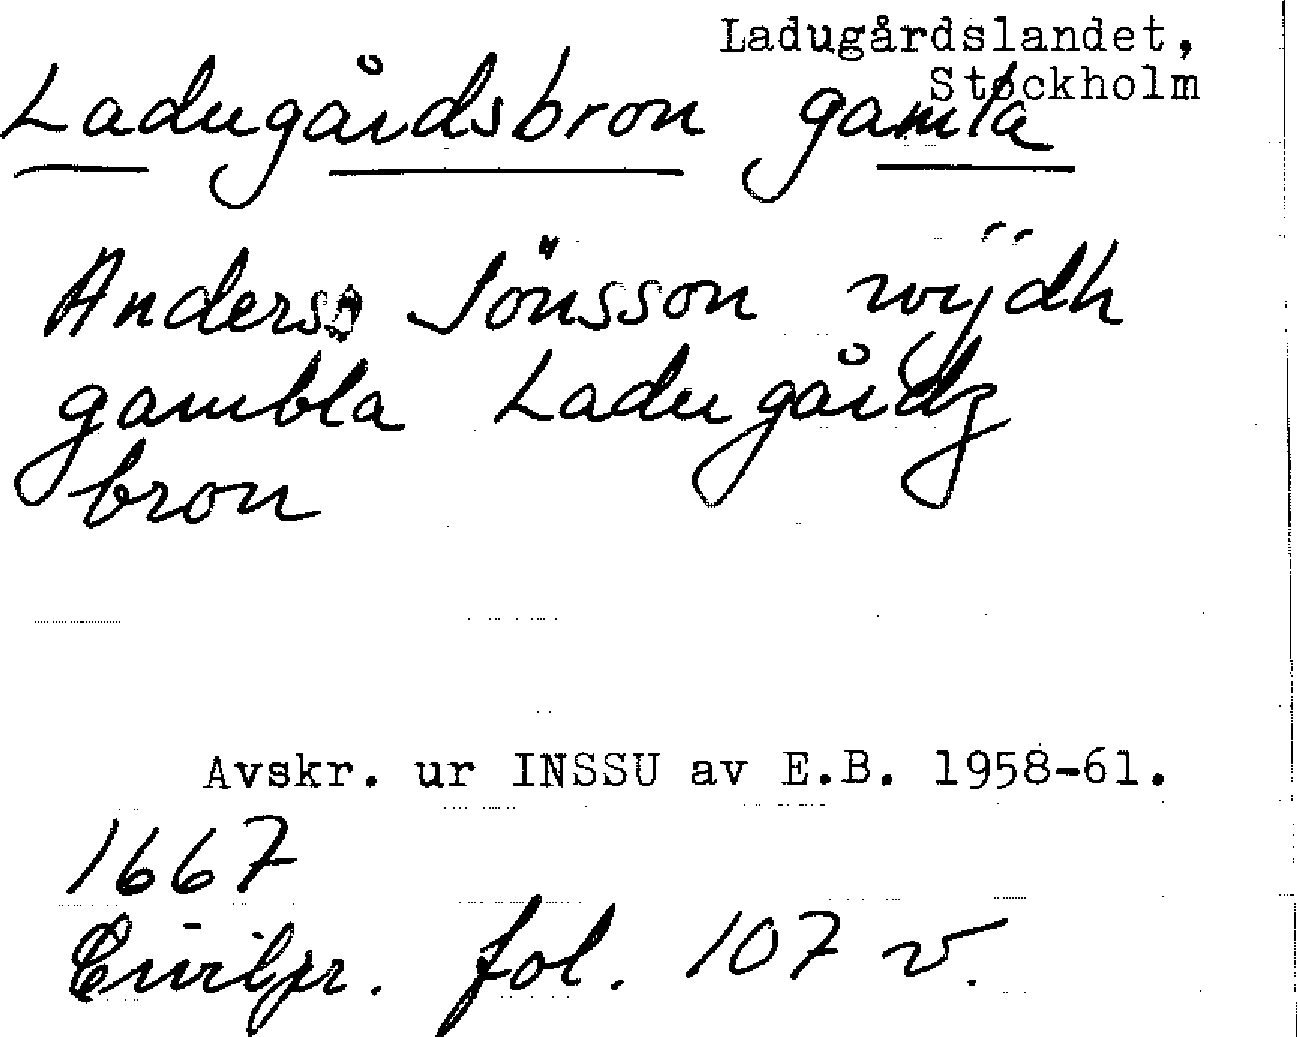 Ladugårdslandet,
Stockholm
Ladugårdsbron gamla
Anders Jönsson wÿdh
gambla Ladugårdz
bron
Avskr. ur INSSU av E.B. 1958-61.
1667
Civilpr. fol. 107 v.